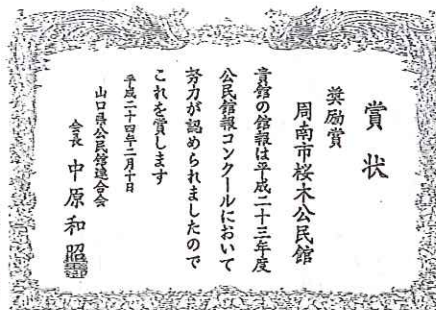 賞状
奨励賞
周南市桜木公民館
貴館の館報は平成二十三年度
公民館報コンクールにおいて
努力が認められましたので
これを賞します
平成二十四年二月十日
山口県公民館連合会
会長 中原和昭